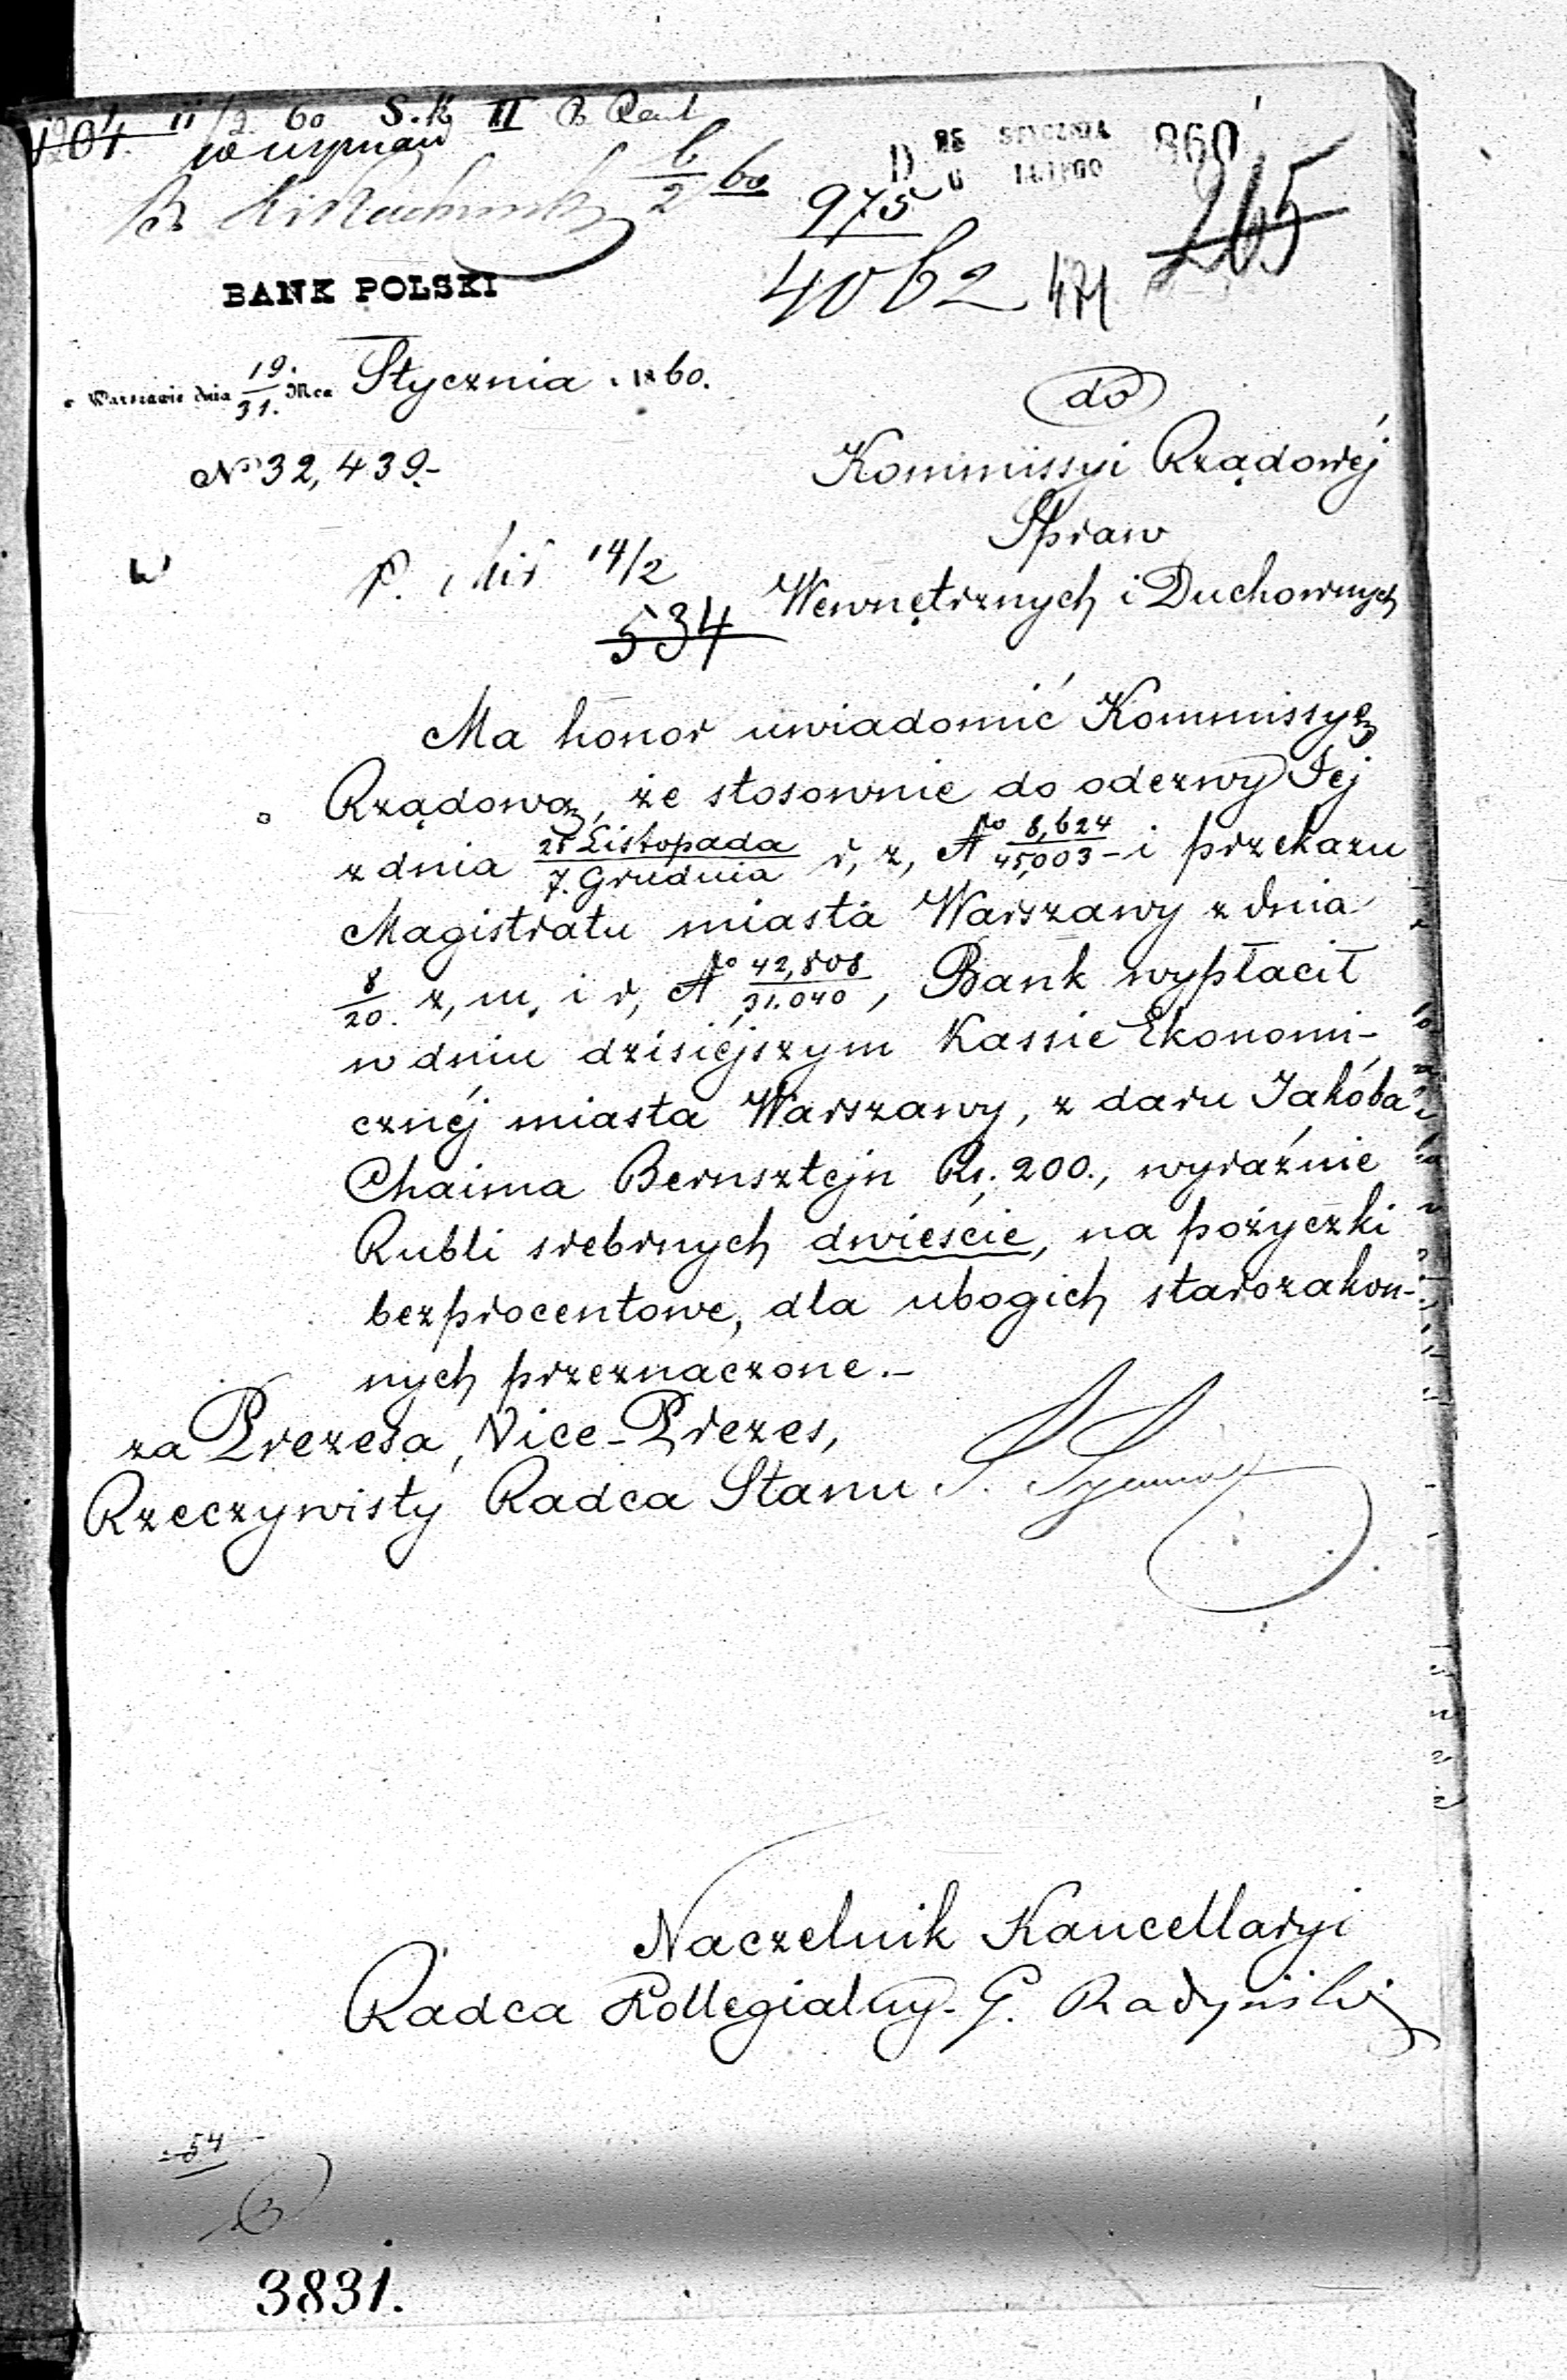 1204. 11/2 60 S.K II
6/2 60
D 25 STYCZNIA 860
6 LUTEGO
975
265
4062 471
BANK POLSKI
w Warszawie dnia 19./31. Mca Stycznia 1860.
do
No 32,439.-
Kommissyi Rządowéj
Spraw
14/2
Wewnętrznych i Duchownych
534
Ma honor uwiadomić Kommissyę
Rządową, że stosownie do odezwy Jéj
z dnia 25 Listopada/7. Grudnia r, z, No 8,624/45,003 - i przekazu
Magistratu miasta Warszawy z dnia
8/20. z, m, i r, No 42,808/31.040, Bank wypłacił
w dniu dzisiéjszym Kassie Ekonomi-
cznéj miasta Warszawy, z daru Jakóba
Chaima Bernsztejn Rs. 200., wyraźnie
Rubli srebrnych dwieście, na pożyczki
bezprocentowe, dla ubogich starozakon-
nych przeznaczone.-
za Prezesa, Vice-Prezes,
Rzeczywisty Radca Stanu
Naczelnik Kancellaryi
Radca Kollegialny. G. Radyński
54
3831.